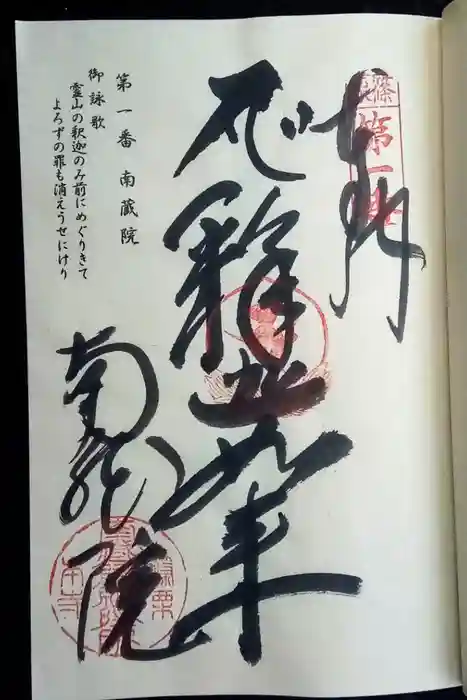 奉拝
篠栗
第一番
釋迦如来
南蔵院
第一番 南蔵院
御詠歌
霊山の釈迦のみ前にめぐりきて
よろずの罪も消えうせにけり